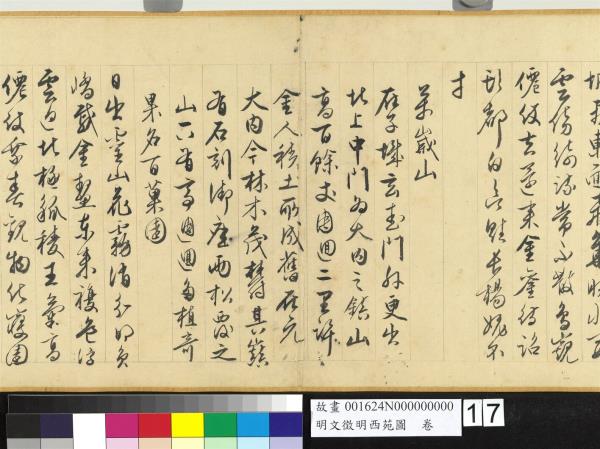 雲傍綺疏常不散鳥窺
僊仗去還來金鑾待詔
頭都白欲賦長楊媿不
才
萬歲山
在子城玄武門外更出
北上中門為大內之鎮山
高百餘丈週迴二里許
金人積土所成舊在元
大內今林木茂密其巔
有石刻御座兩松覆之
山下有亭週迴多植奇
果名百菓園
日出靈山花霧消分明員
嶠戴金鰲東來複道浮
雲迥北極觚稜王氣高
僊仗乘春觀物化寢園
故畫 001624N000000000
明文徵明西苑圖 卷
17